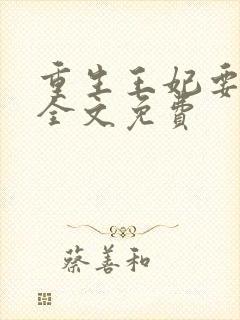 重生王妃要
全文免费
蔡善和